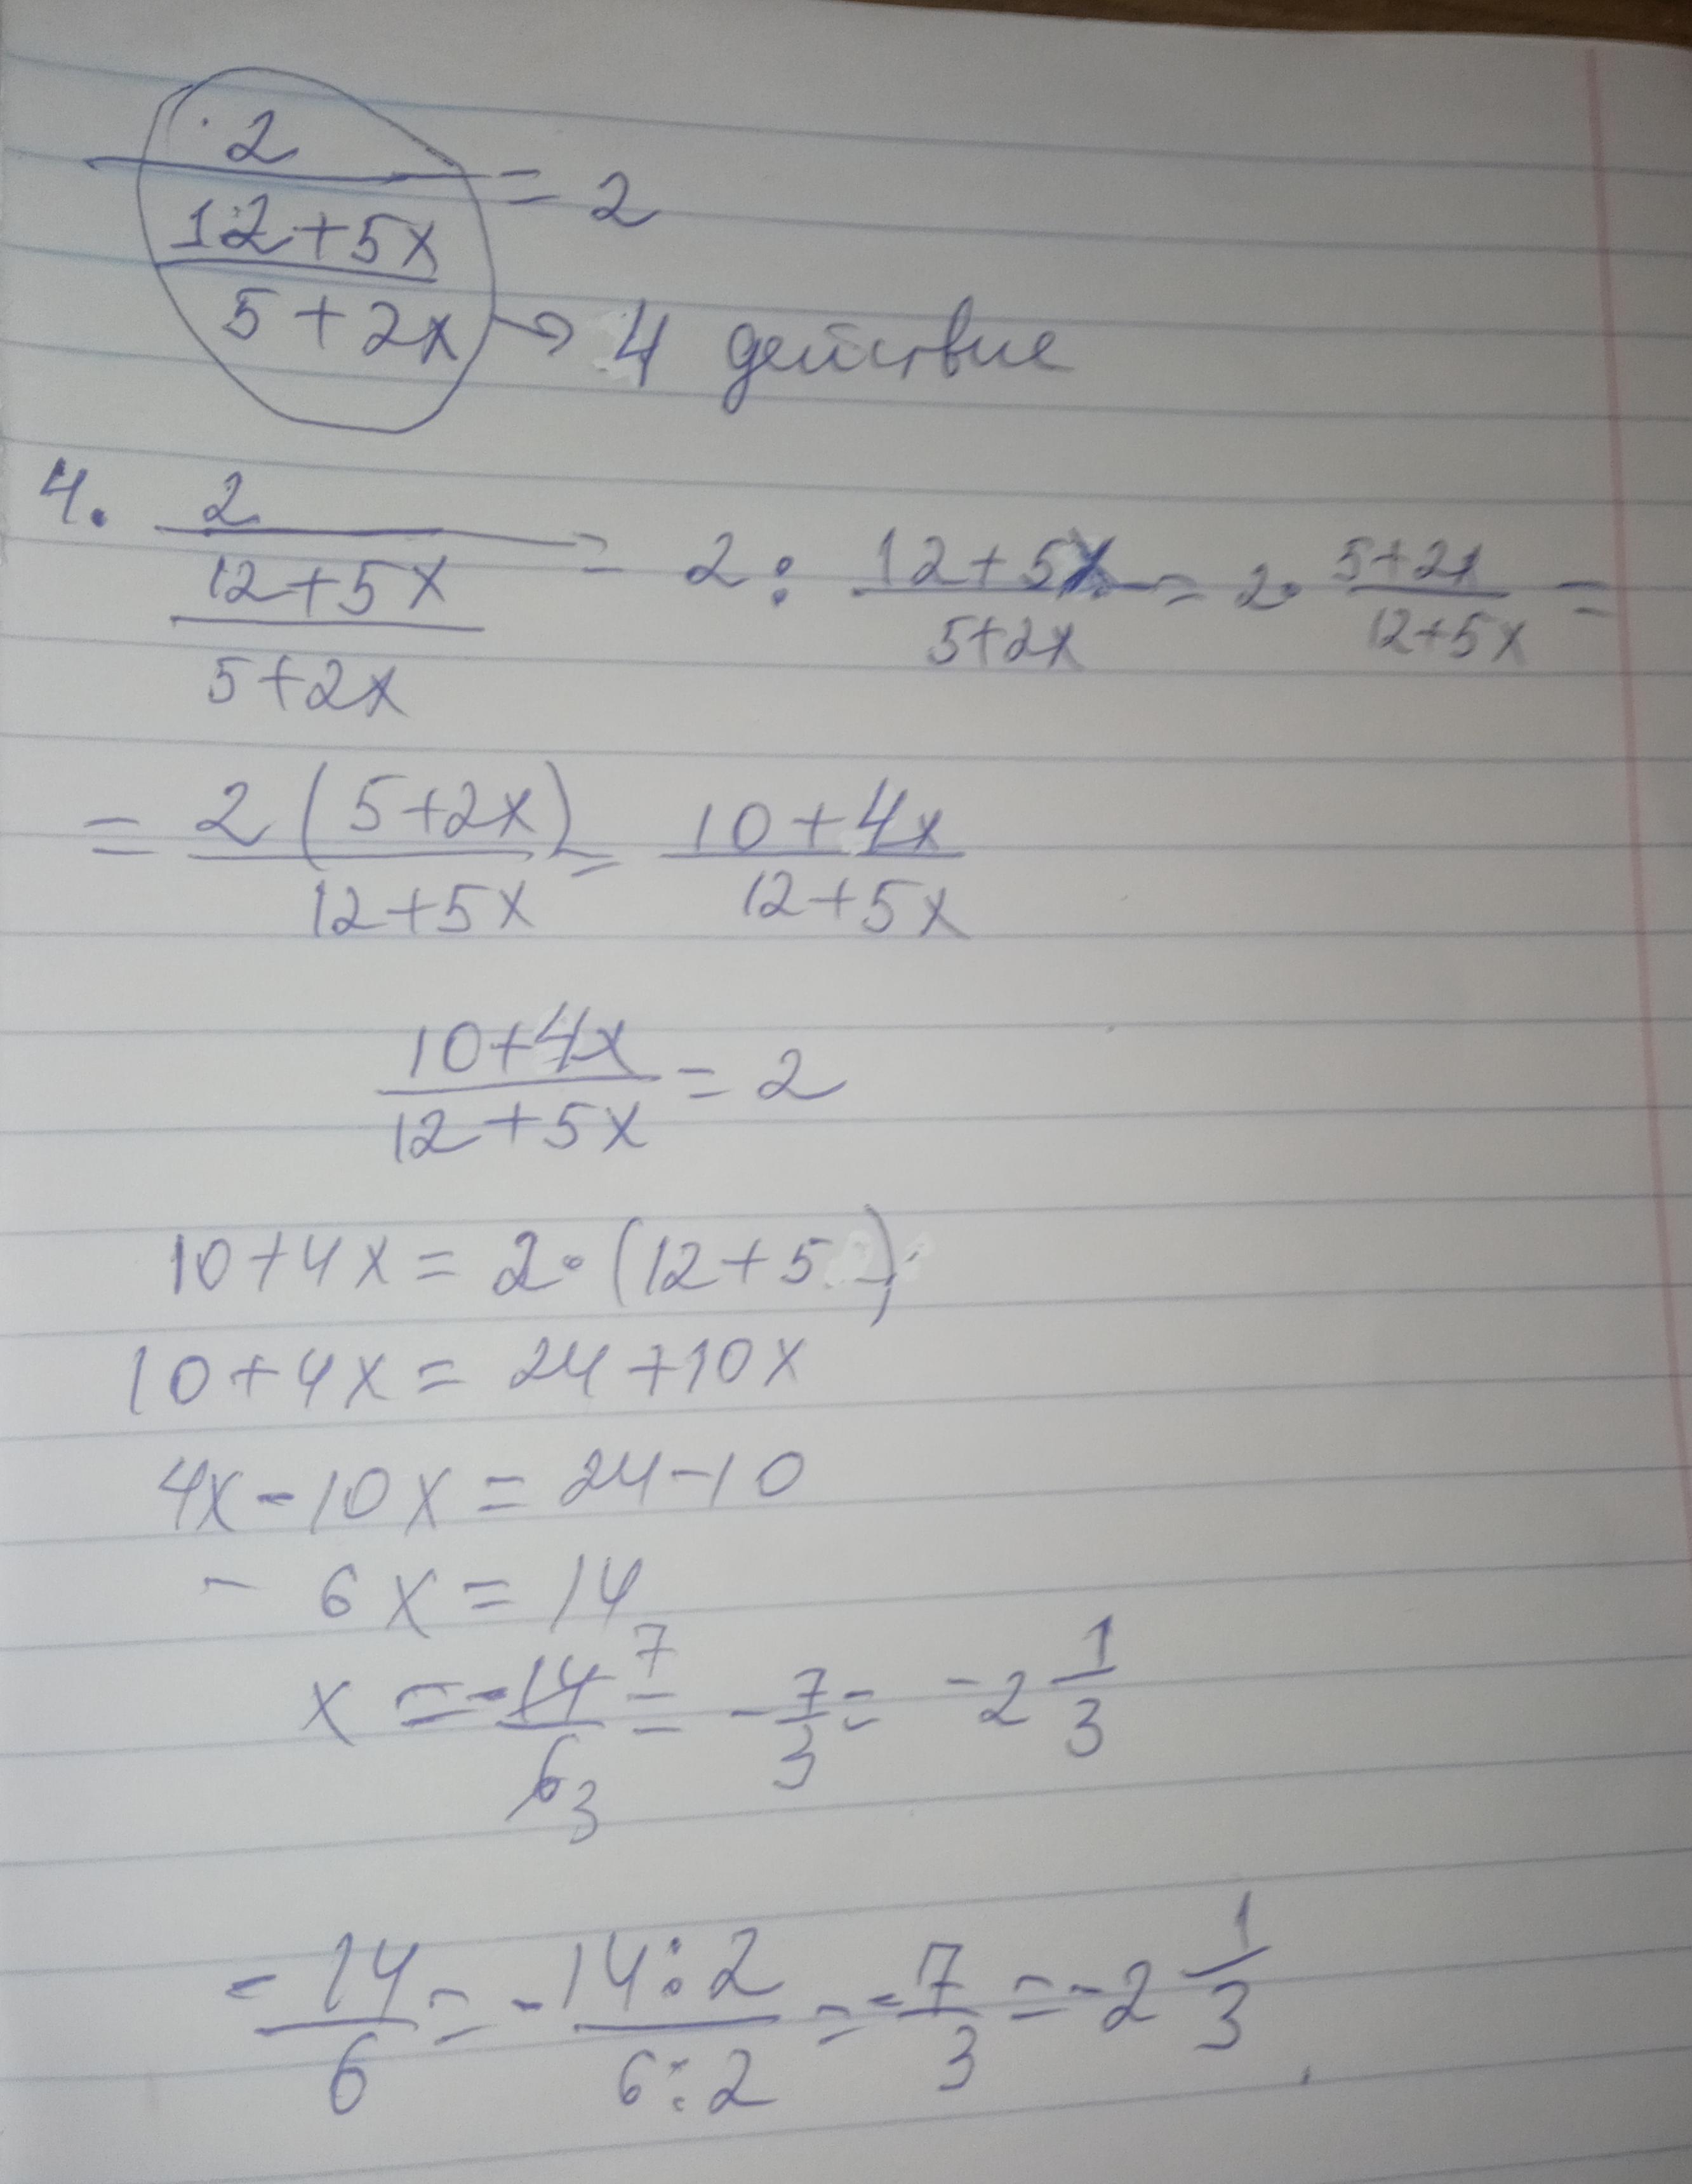 2/((12+5x)/(5+2x)) = 2
→ 4 действие
4. 2/((12+5x)/(5+2x)) = 2 : (12+5x)/(5+2x) = 2 · (5+2x)/(12+5x) =
= 2(5+2x)/(12+5x) = (10+4x)/(12+5x)
(10+4x)/(12+5x) = 2
10+4x = 2·(12+5 )
10+4x = 24+10x
4x-10x = 24-10
- 6x = 14
x = -14/6 7 3 = -7/3 = -2 1/3
-14/6 = -14:2/6:2 = -7/3 = -2 1/3